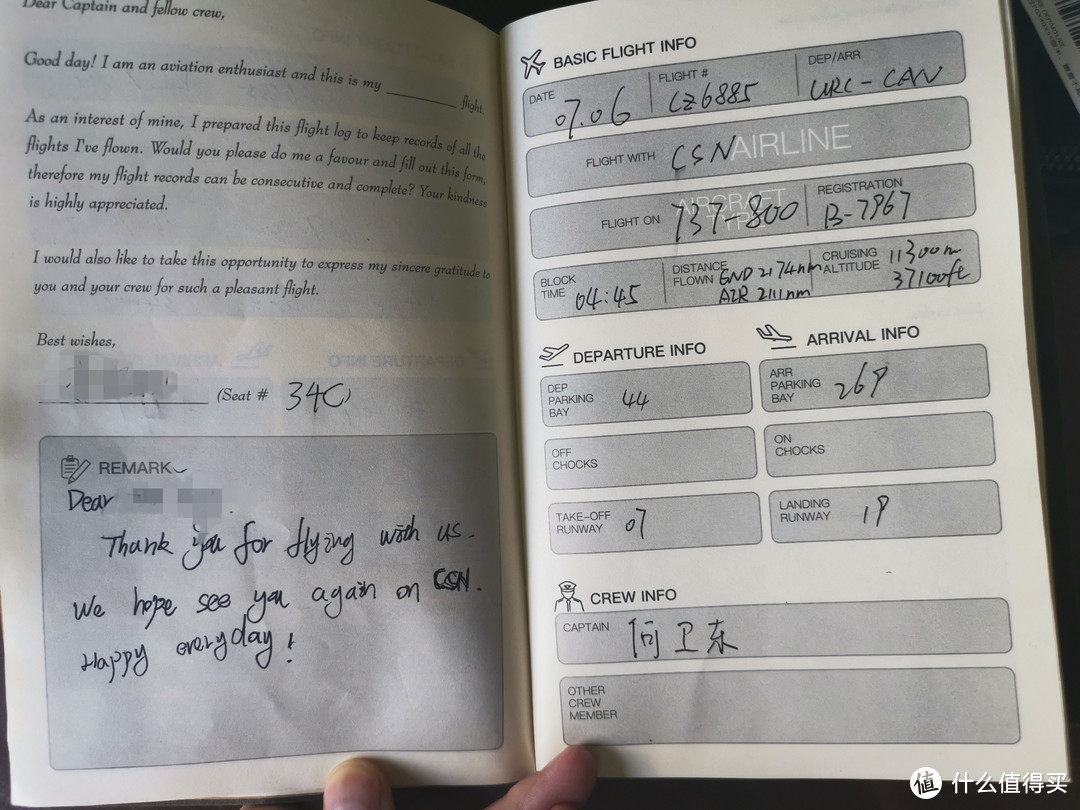 Dear Captain and fellow crew,
Good day! I am an aviation enthusiast and this is my ________ flight.
As an interest of mine, I prepared this flight log to keep records of all the
flights I've flown. Would you please do me a favour and fill out this form,
therefore my flight records can be consecutive and complete? Your kindness
is highly appreciated.
I would also like to take this opportunity to express my sincere gratitude to
you and your crew for such a pleasant flight.
Best wishes,
(Seat # 34C)
REMARK
Dear
Thank you for flying with us.
We hope see you again on CSN.
Happy everyday!
BASIC FLIGHT INFO
DATE 07.06 FLIGHT # CZ6885 DEP/ARR URC-CAN
FLIGHT WITH CSN AIRLINE
FLIGHT ON 737-800 AIRCRAFT TYPE REGISTRATION B-7967
BLOCK TIME 04:45 DISTANCE FLOWN GND 2174nm AIR 2111nm CRUISING ALTITUDE 11300m 37100ft
DEPARTURE INFO
DEP PARKING BAY 44
OFF CHOCKS
TAKE-OFF RUNWAY 07
ARRIVAL INFO
ARR PARKING BAY 269
ON CHOCKS
LANDING RUNWAY 19
CREW INFO
CAPTAIN 何卫东
OTHER CREW MEMBER
值 什么值得买